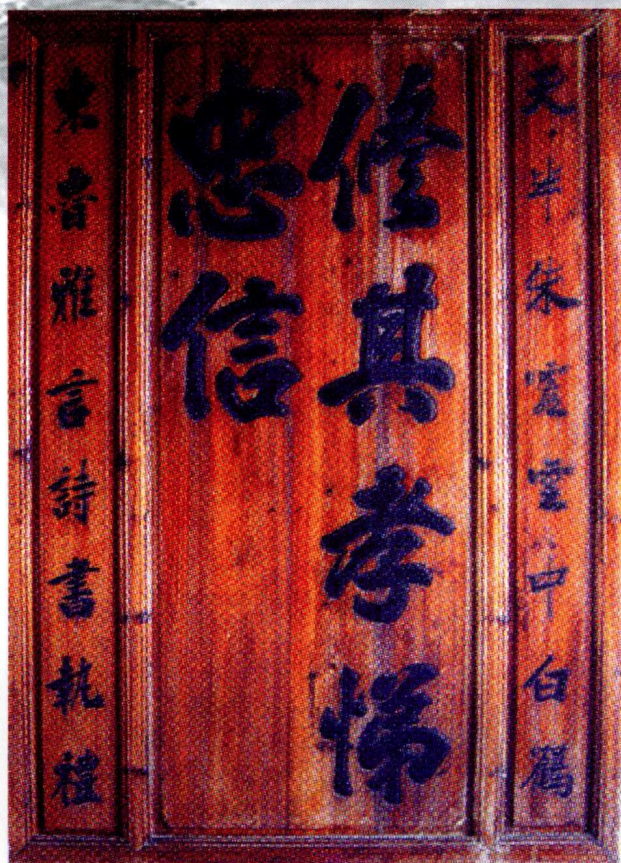 天半朱霞雲中白鶴
修其孝悌
忠信
東魯雅言詩書執禮